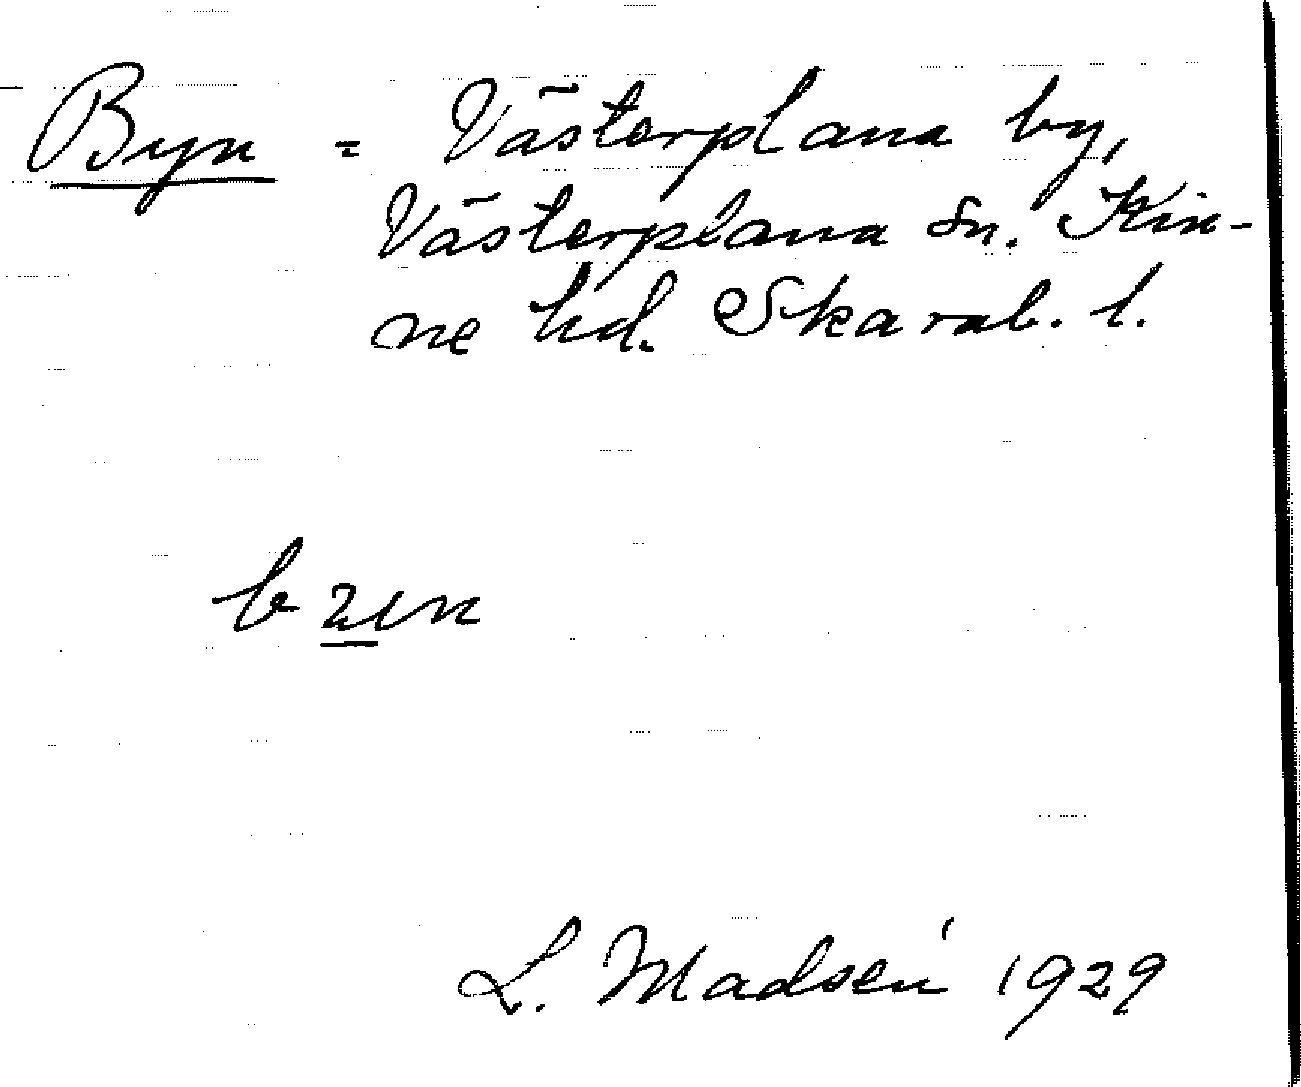 Byn = Västerplana by,
Västerplana sn. Kin-
ne hd. Skarab. l.
L. Madsén 1929